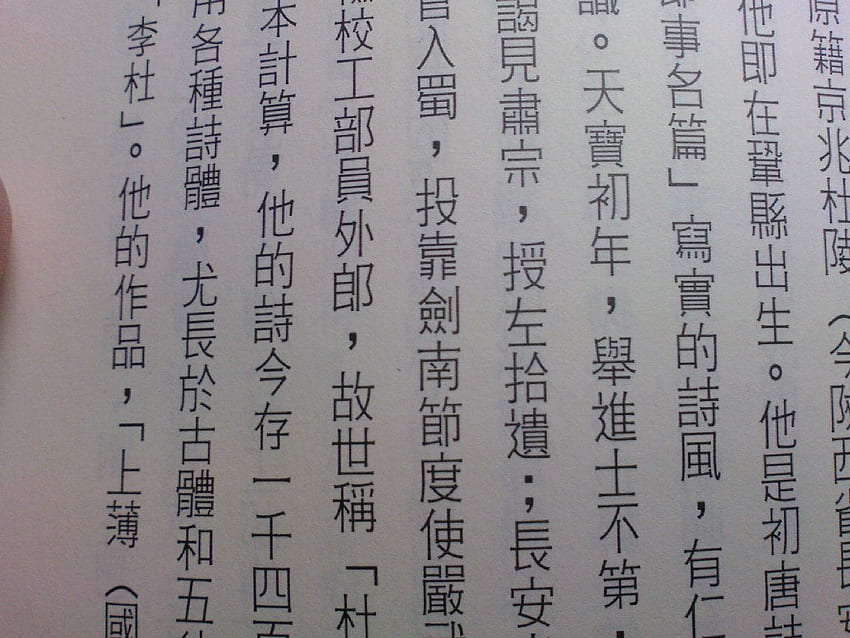 原籍京兆杜陵（今陝西省長安
他即在鞏縣出生。他是初唐詩
即事名篇」寫實的詩風，有仁
識。天寶初年，舉進士不第，
謁見肅宗，授左拾遺；長安
官入蜀，投靠劍南節度使嚴武
檢校工部員外郎，故世稱「杜
本計算，他的詩今存一千四百
用各種詩體，尤長於古體和五律
「李杜」。他的作品，「上薄（國